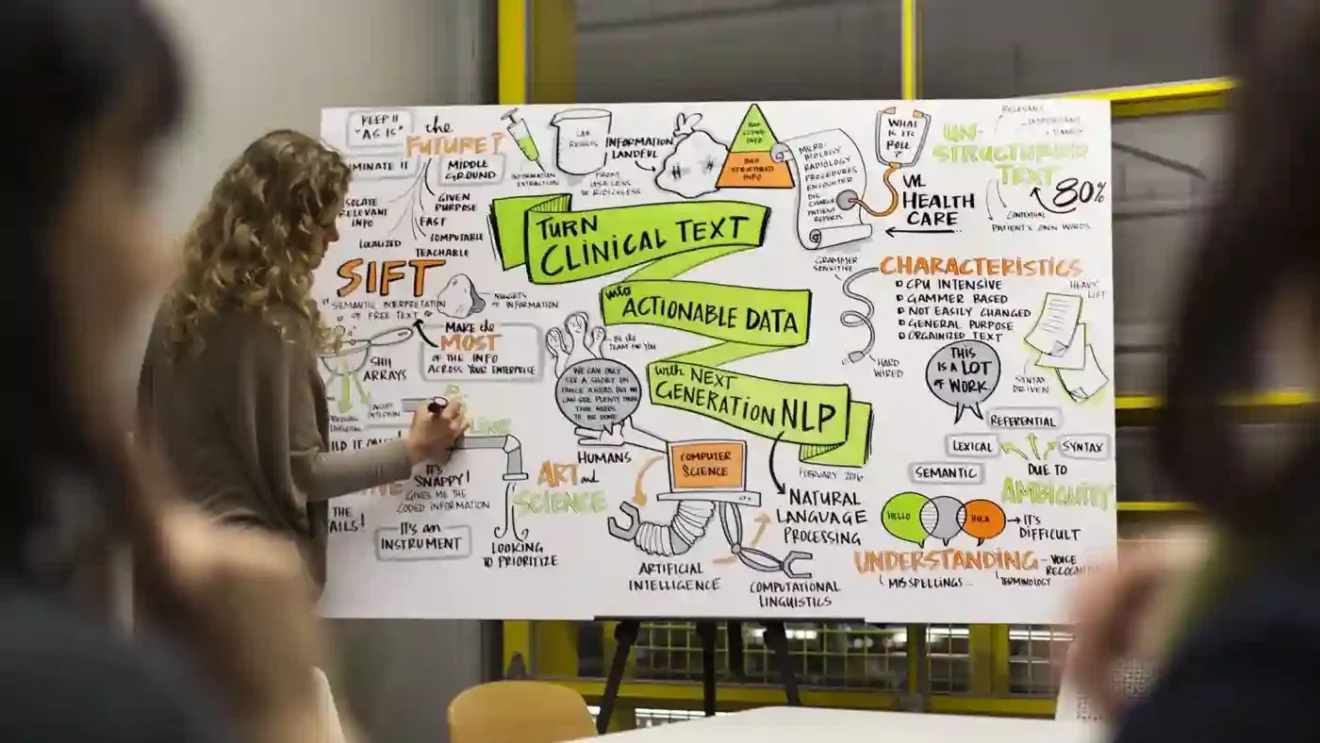 KEEP IT
"AS IS"
the
FUTURE?
MIDDLE
GROUND
GIVEN
PURPOSE
FAST
RELEVANT
INFO
LOCALIZED
COMPUTABLE
TEACHABLE
SIFT
SEMANTIC INTERPRETATION
OF FREE TEXT
NUGGETS
OF INFORMATION
MAKE the
MOST
OF THE INFO
ACROSS YOUR ENTERPRISE
ARRAYS
IT'S
SNAPPY!
GIVES ME THE
CODED INFORMATION
THE
IT'S AN
INSTRUMENT
LOOKING
TO PRIORITIZE
INFORMATION
EXTRACTION
LAB
RESULTS
INFORMATION
LANDFILL
FROM
USELESS
TO RIDICULESS
STRUCTURED
INFO
MICRO-
BIOLOGY
RADIOLOGY
PROCEDURES
ENCOUNTER
DIS
CHARGE
PATIENT
REPORTS
WHAT
IS ITS
POLL?
HEALTH
CARE
UN-
STRUCTURED
TEXT
80%
RELEVANT
CONTEXTUAL
PATIENT'S OWN WORDS
TURN
CLINICAL TEXT
into
ACTIONABLE DATA
with NEXT
GENERATION NLP
FEBRUARY 2016
BE THE
TEAM FOR YOU
WE CAN ONLY
SEE A SHORT DIS
TANCE AHEAD, BUT WE
CAN SEE PLENTY THERE
THAT NEEDS
TO BE DONE
HUMANS
ART and
SCIENCE
COMPUTER
SCIENCE
ARTIFICIAL
INTELLIGENCE
COMPUTATIONAL
LINGUISTICS
NATURAL
LANGUAGE
PROCESSING
GRAMMER
SENSITIVE
HARD
WIRED
CHARACTERISTICS
CPU INTENSIVE
GAMMER BASED
NOT EASILY CHANGED
GENERAL PURPOSE
ORGAINIZED TEXT
HEAVY
LIFT
THIS
IS A LOT
of WORK.
SYNTAX
DRIVEN
REFERENTIAL
LEXICAL
SYNTAX
SEMANTIC
DUE TO
AMBIGUITY
HELLO
HOLA
IT'S
DIFFICULT
UNDERSTANDING
VOICE
MISSPELLINGS
TERMINOLOGY